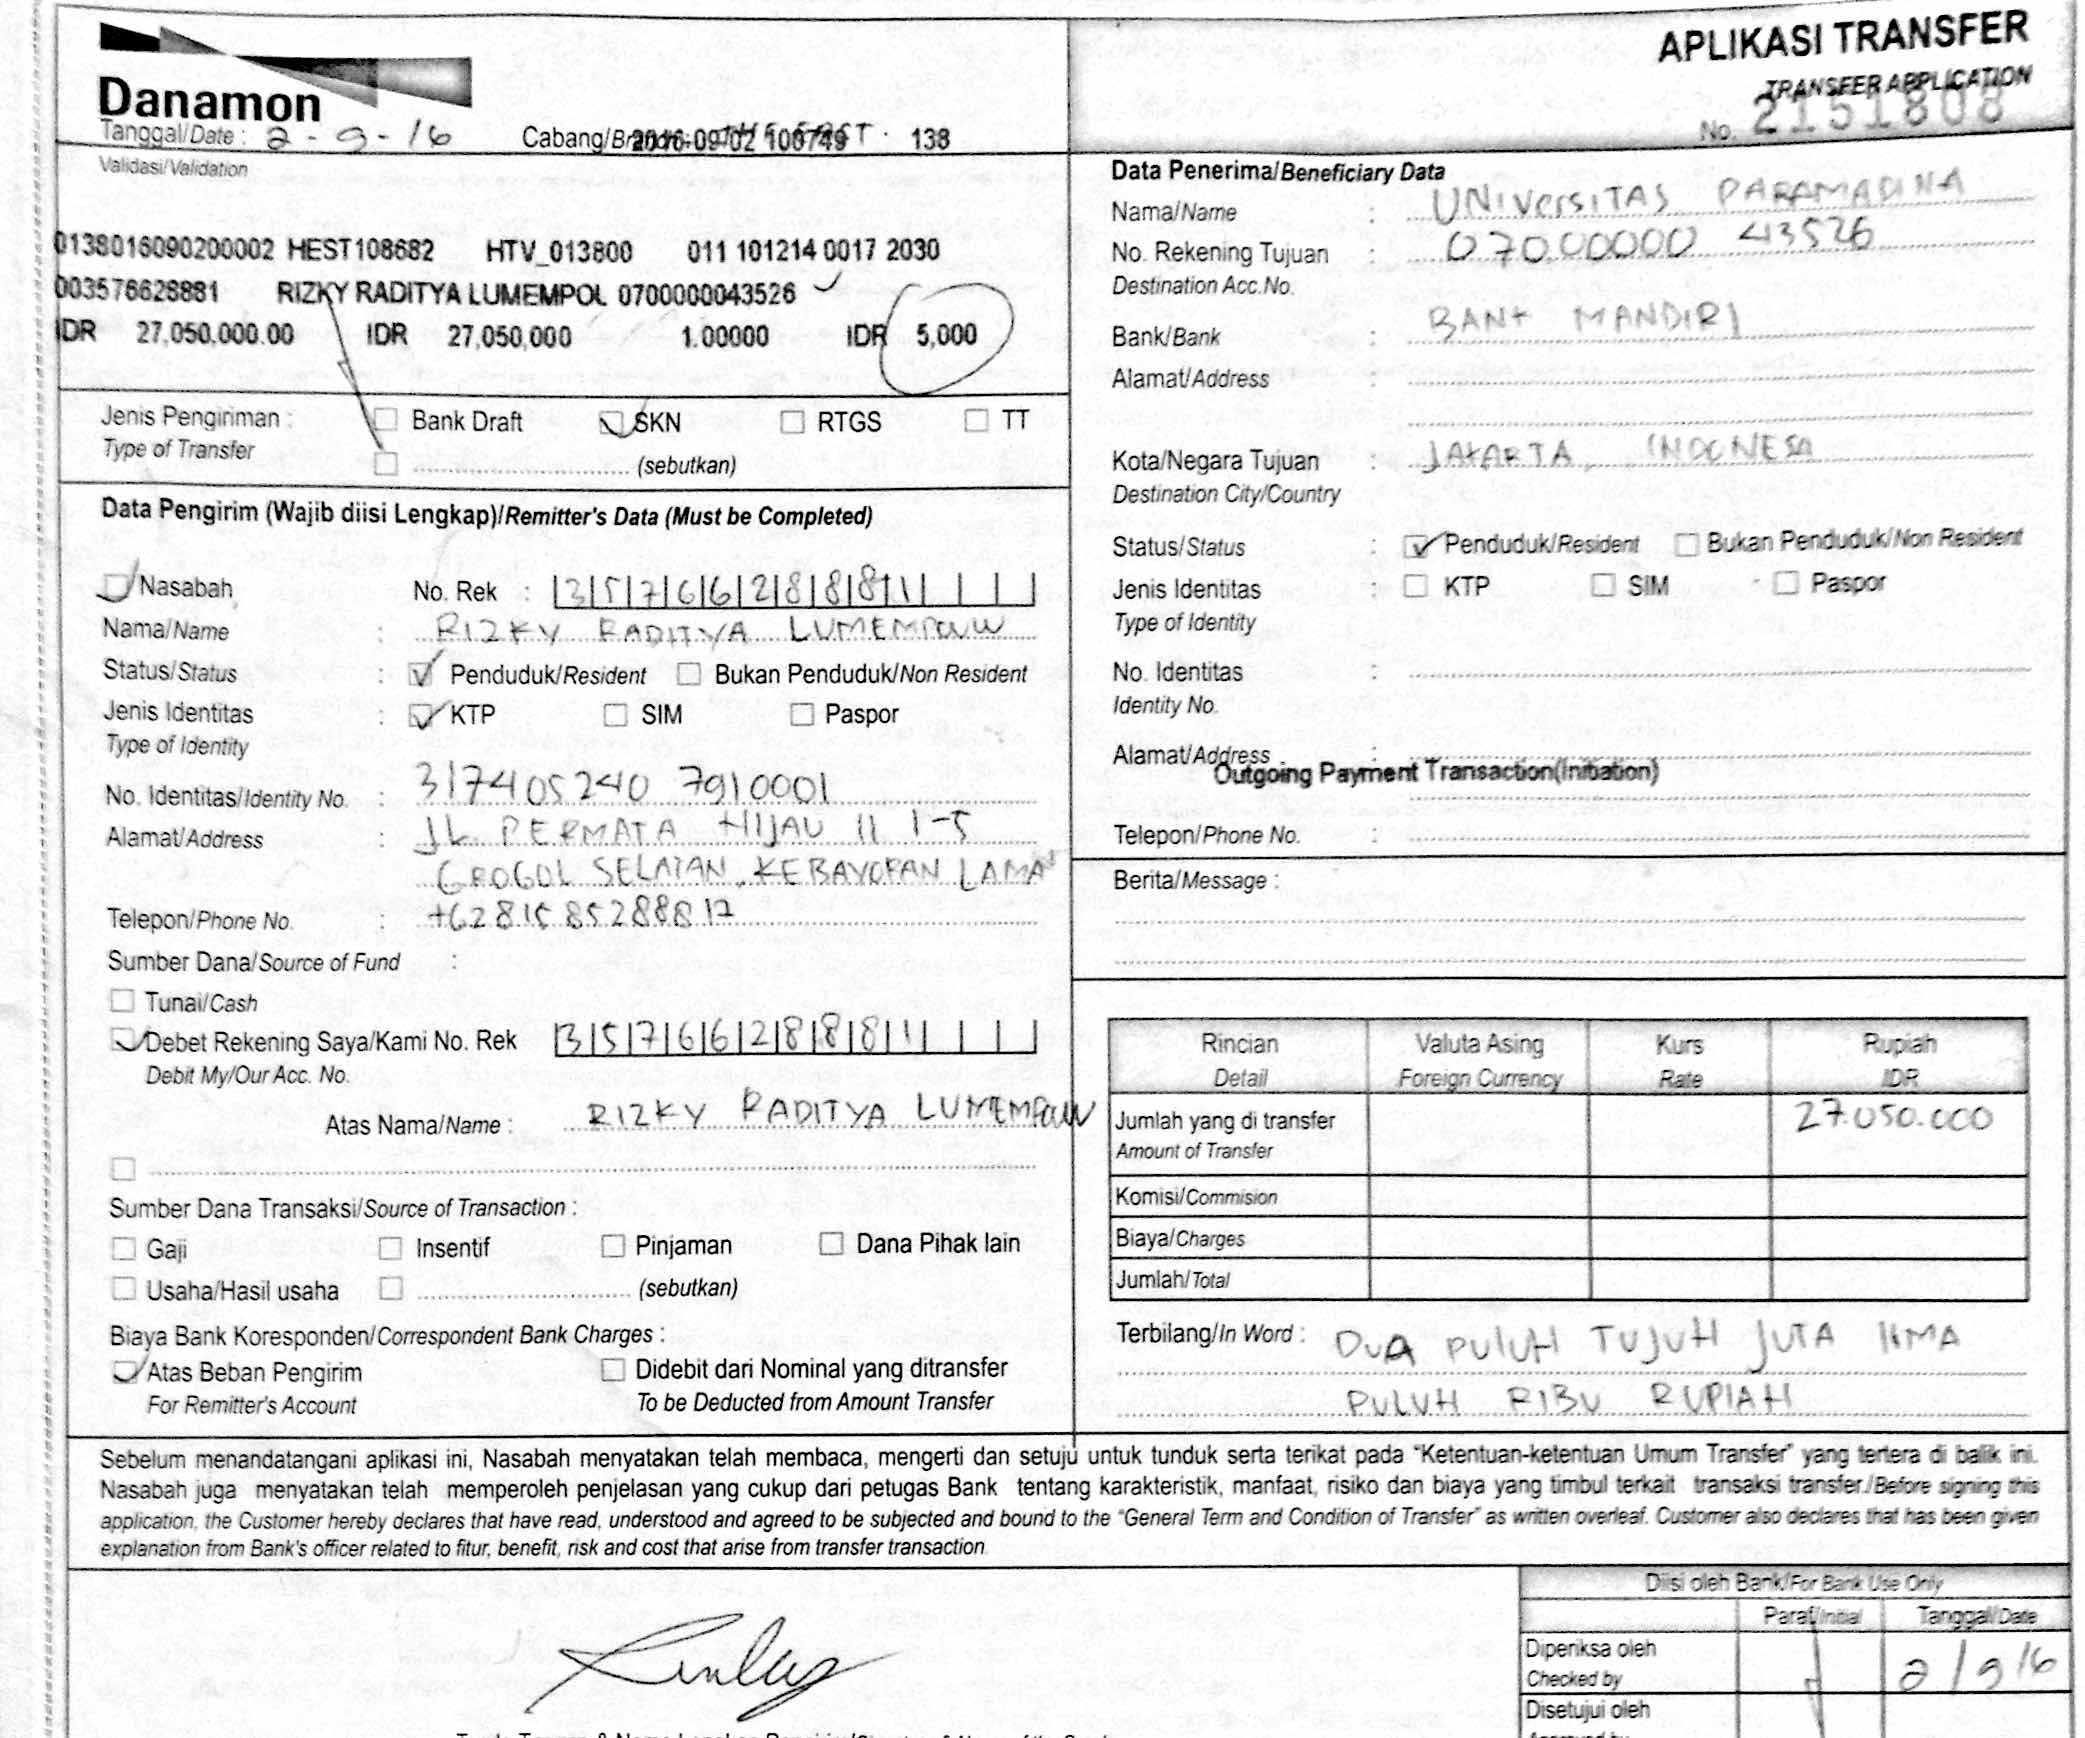 APLIKASI TRANSFER
TRANSFER APPLICATION
No. 2151808
Danamon
Tanggal/Date : 2 - 9 - 16
Cabang/Branch : THE EAST
2016-09-02 100749 138
Validasi/Validation
0138016090200002 HEST108682 HTV_013800 011 101214 0017 2030
003576628881 RIZKY RADITYA LUMEMPOL 0700000043526
IDR 27,050,000.00 IDR 27,050,000 1.00000 IDR 5,000
Jenis Pengiriman : Bank Draft SKN RTGS TT
Type of Transfer (sebutkan)
Data Pengirim (Wajib diisi Lengkap)/Remitter's Data (Must be Completed)
Nasabah No. Rek : 3576628881
Nama/Name : RIZKY RADITYA LUMEMPOUW
Status/Status : Penduduk/Resident Bukan Penduduk/Non Resident
Jenis Identitas : KTP SIM Paspor
Type of Identity
No. Identitas/Identity No. : 317405240 7910001
Alamat/Address : JL PERMATA HIJAU II I-5
GROGOL SELATAN, KEBAYORAN LAMA
Telepon/Phone No. : +6281585288817
Sumber Dana/Source of Fund :
Tunai/Cash
Debet Rekening Saya/Kami No. Rek 3576628881
Debit My/Our Acc. No.
Atas Nama/Name : RIZKY RADITYA LUMEMPOUW
Sumber Dana Transaksi/Source of Transaction :
Gaji Insentif Pinjaman Dana Pihak lain
Usaha/Hasil usaha (sebutkan)
Biaya Bank Koresponden/Correspondent Bank Charges :
Atas Beban Pengirim Didebit dari Nominal yang ditransfer
For Remitter's Account To be Deducted from Amount Transfer
Data Penerima/Beneficiary Data
Nama/Name : UNIVERSITAS PARAMADINA
No. Rekening Tujuan : 070.00000 43526
Destination Acc.No.
Bank/Bank : BANK MANDIRI
Alamat/Address :
Kota/Negara Tujuan : JAKARTA, INDONESIA
Destination City/Country
Status/Status : Penduduk/Resident Bukan Penduduk/Non Resident
Jenis Identitas : KTP SIM Paspor
Type of Identity
No. Identitas :
Identity No.
Alamat/Address :
Outgoing Payment Transaction(Initiation)
Telepon/Phone No. :
Berita/Message :
Rincian Valuta Asing Kurs Rupiah
Detail Foreign Currency Rate IDR
Jumlah yang di transfer 27.050.000
Amount of Transfer
Komisi/Commision
Biaya/Charges
Jumlah/Total
Terbilang/In Word : DUA PULUH TUJUH JUTA LIMA
PULUH RIBU RUPIAH
Sebelum menandatangani aplikasi ini, Nasabah menyatakan telah membaca, mengerti dan setuju untuk tunduk serta terikat pada "Ketentuan-ketentuan Umum Transfer" yang tertera di balik ini.
Nasabah juga menyatakan telah memperoleh penjelasan yang cukup dari petugas Bank tentang karakteristik, manfaat, risiko dan biaya yang timbul terkait transaksi transfer./Before signing this
application, the Customer hereby declares that have read, understood and agreed to be subjected and bound to the "General Term and Condition of Transfer" as written overleaf. Customer also declares that has been given
explanation from Bank's officer related to fitur, benefit, risk and cost that arise from transfer transaction.
Diisi oleh Bank/For Bank Use Only
Paraf/Initial Tanggal/Date
Diperiksa oleh 2/9/16
Checked by
Disetujui oleh